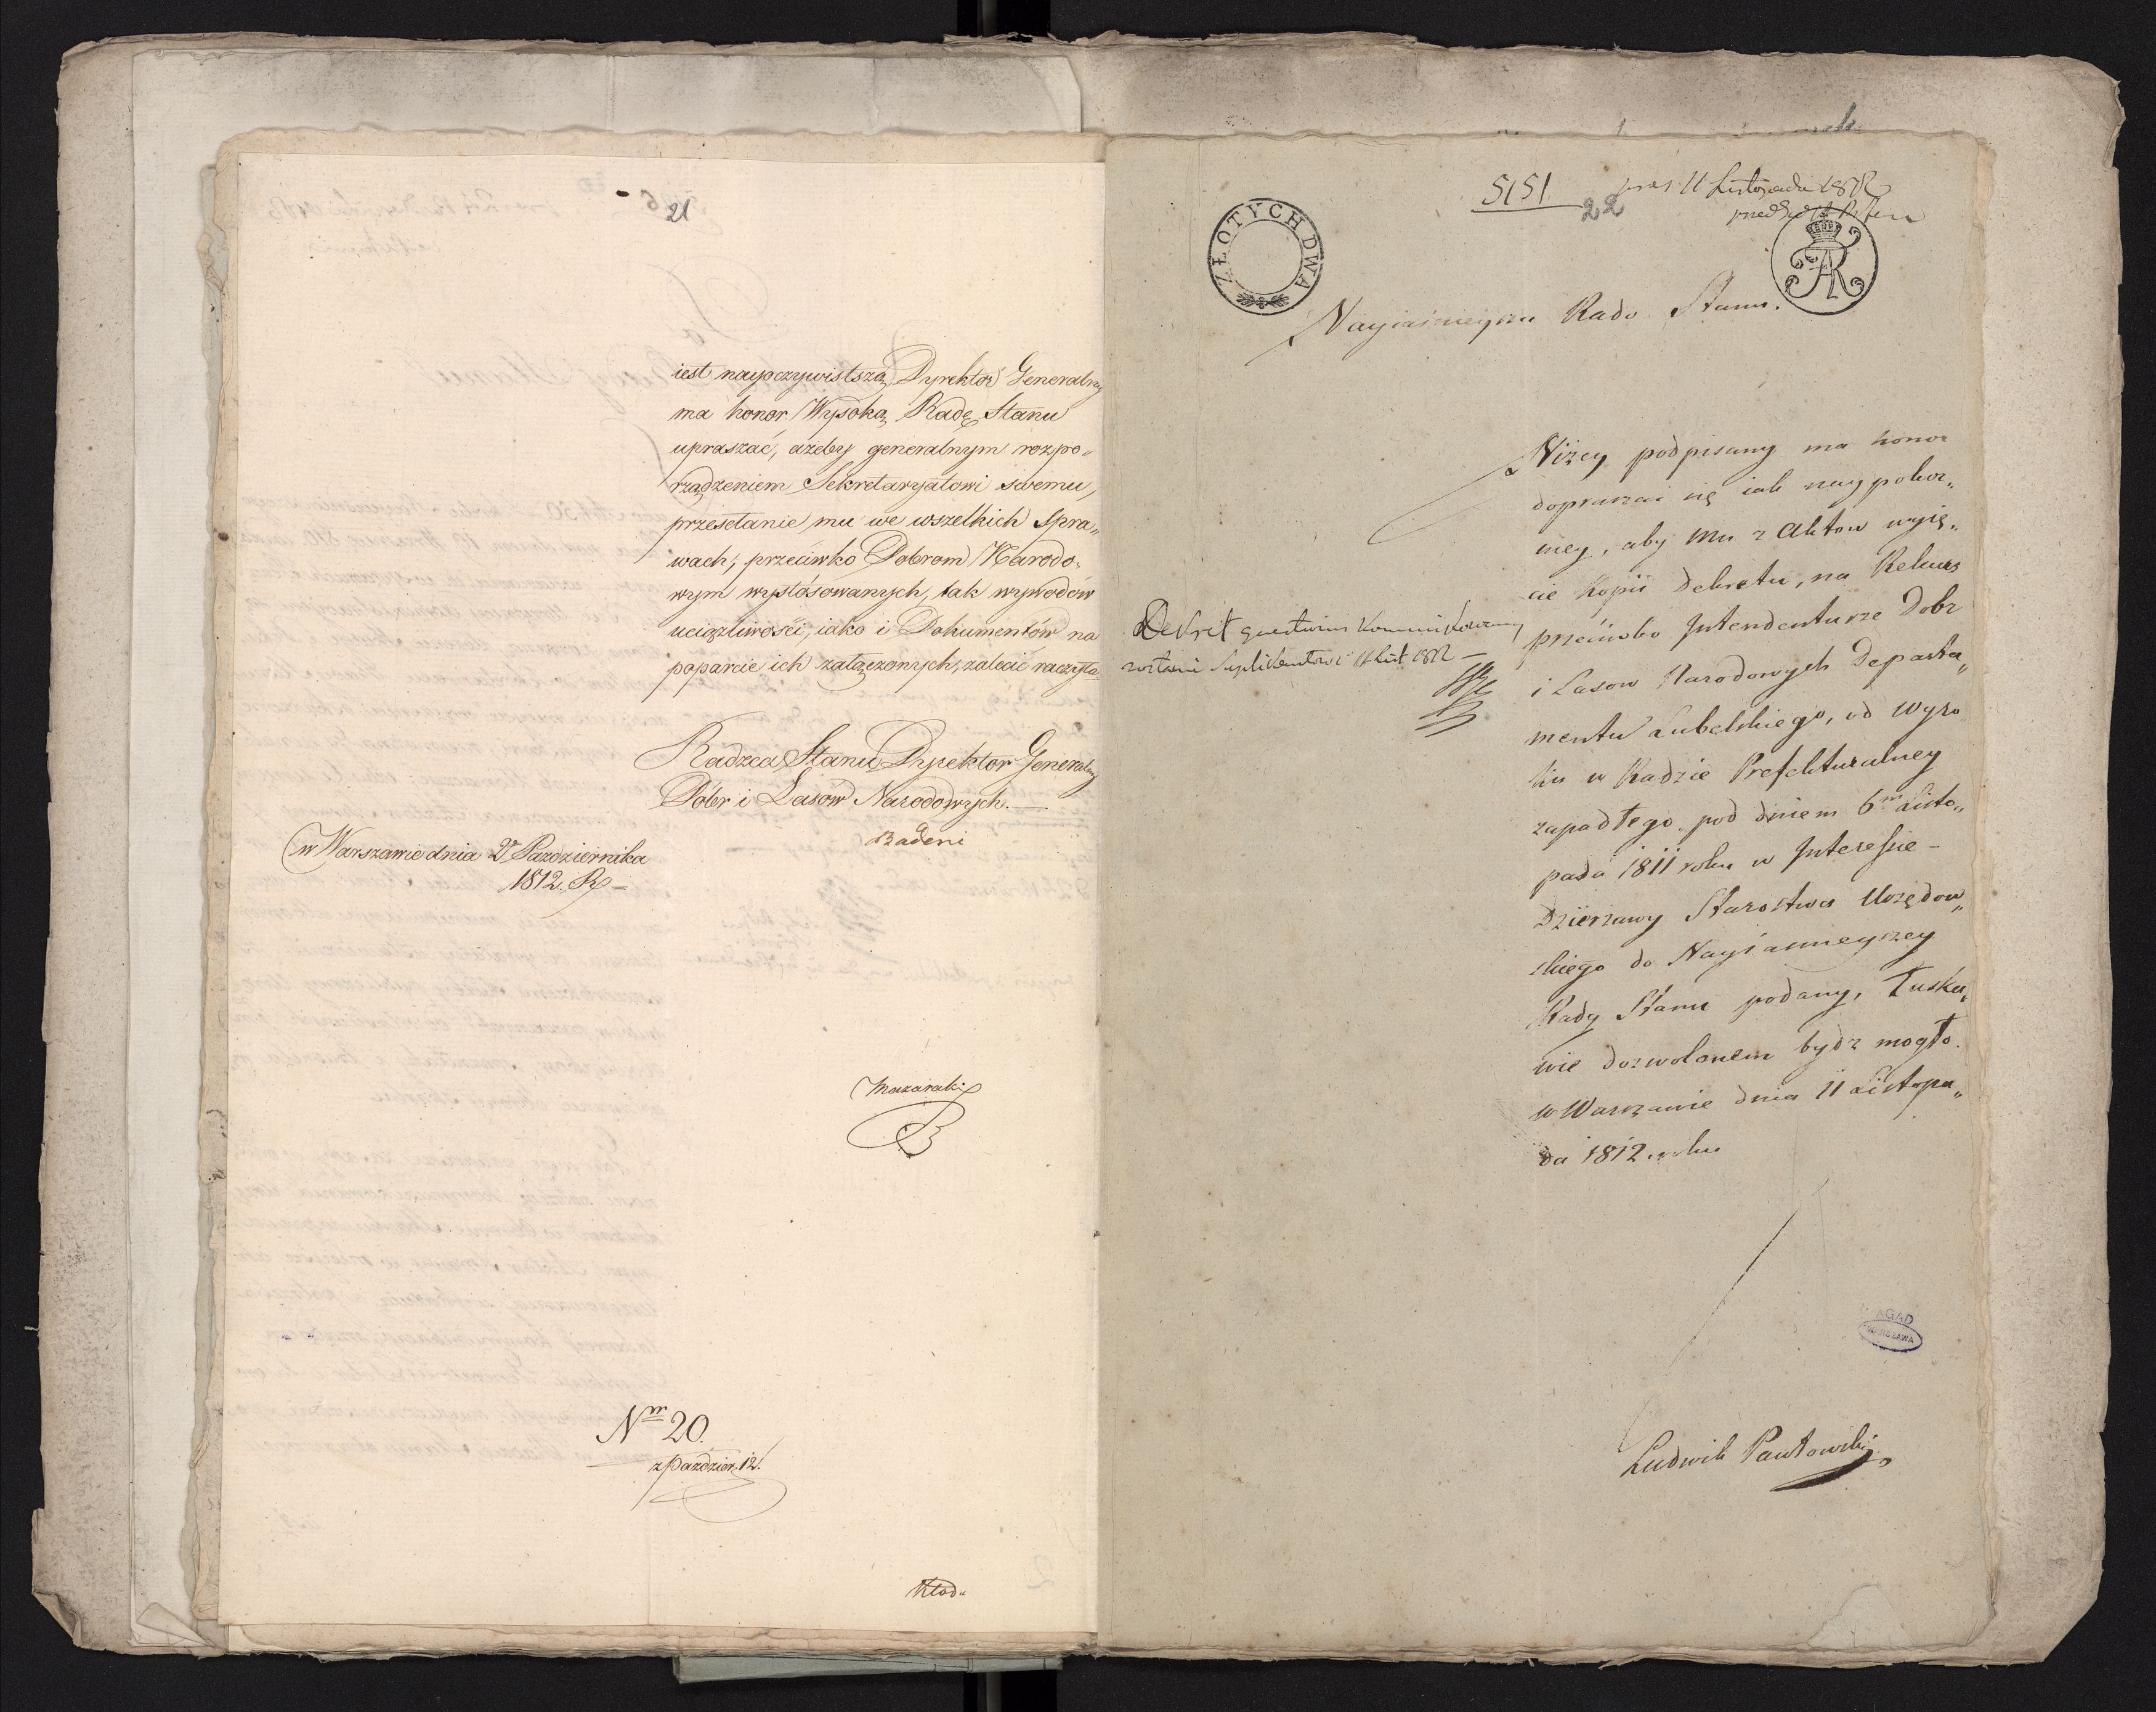 21
iest nayoczywistszą, Dyrektor Generalny
ma honor Wysoką Radę Stanu
upraszać, ażeby generalnym rozpo„
rządzeniem Sekretaryatowi swemu,
przesełanie mu we wszelkich Spra„
wach, przeciwko Dobrom Narodo„
wym wystósowanych, tak wywodów
uciążliwości, iako i Dokumentów na
poparcie ich załączonych, zalecić raczyła
Radzca Stanu Dyrektor Generalny
Dóbr i Lasów Narodowych.
Badeni
w Warszawie dnia 2go Pazdziernika
1812. R.
Mazaraki
Nr 20.
z Pazdzier. 12.
Kłod„
5151
22
pres 11 Listopada 1812
ZŁOTYCH DWA
Nayiaśnieysza Rado Stanu.
Niżey podpisany ma honor
dopraszać się iak naypokor„
niey, aby mu z Aktow wyię„
cie Kopii Dekretu, na Rekurs
przeciwko Intendenturze Dobr
i Lasow Narodowych Departa„
mentu Lubelskiego, od Wyro
ku w Radzie Prefekturalney
zapadłego pod dniem 6m Listo„
pada 1811 roku w Interessie –
Dzierżawy Starostwa Urzędow„
skiego do Nayiasnieyszey
Rady Stanu podany, Łaska„
wie dozwolonem bydz mogło.
w Warszawie dnia 11 Listopa„
da 1812 roku
Dekret quaestionis kommunikowany
został Suplikantowi 11 List 1812 –
AGAD
WARSZAWA
Ludwik Pawłowski